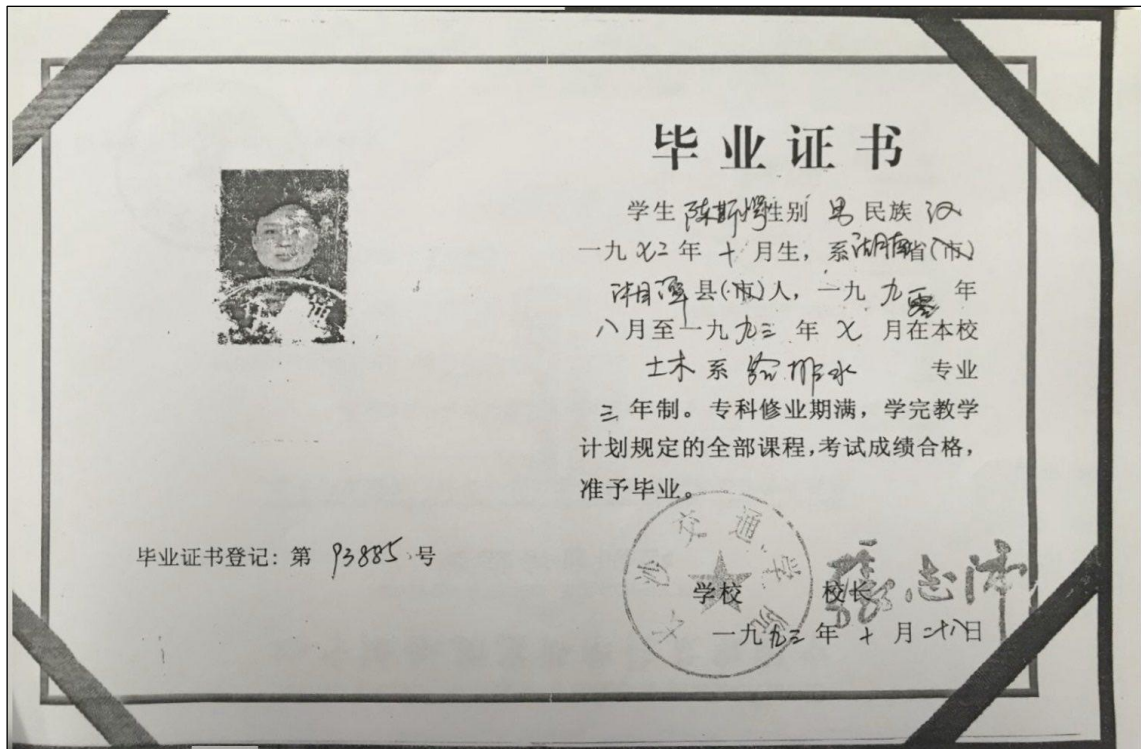 毕业证书
学生 陈斯 性别 男 民族 汉
一九七二年 十 月生，系湖南省(市)
湘潭县(市)人，一九 九零 年
八月至一九九三 年 七 月在本校
土木 系 给排水 专业
三 年制。专科修业期满，学完教学
计划规定的全部课程，考试成绩合格，
准予毕业。
长沙交通学院
毕业证书登记：第 93885 号
学校 校长 志
一九九三 年 十 月二十八日